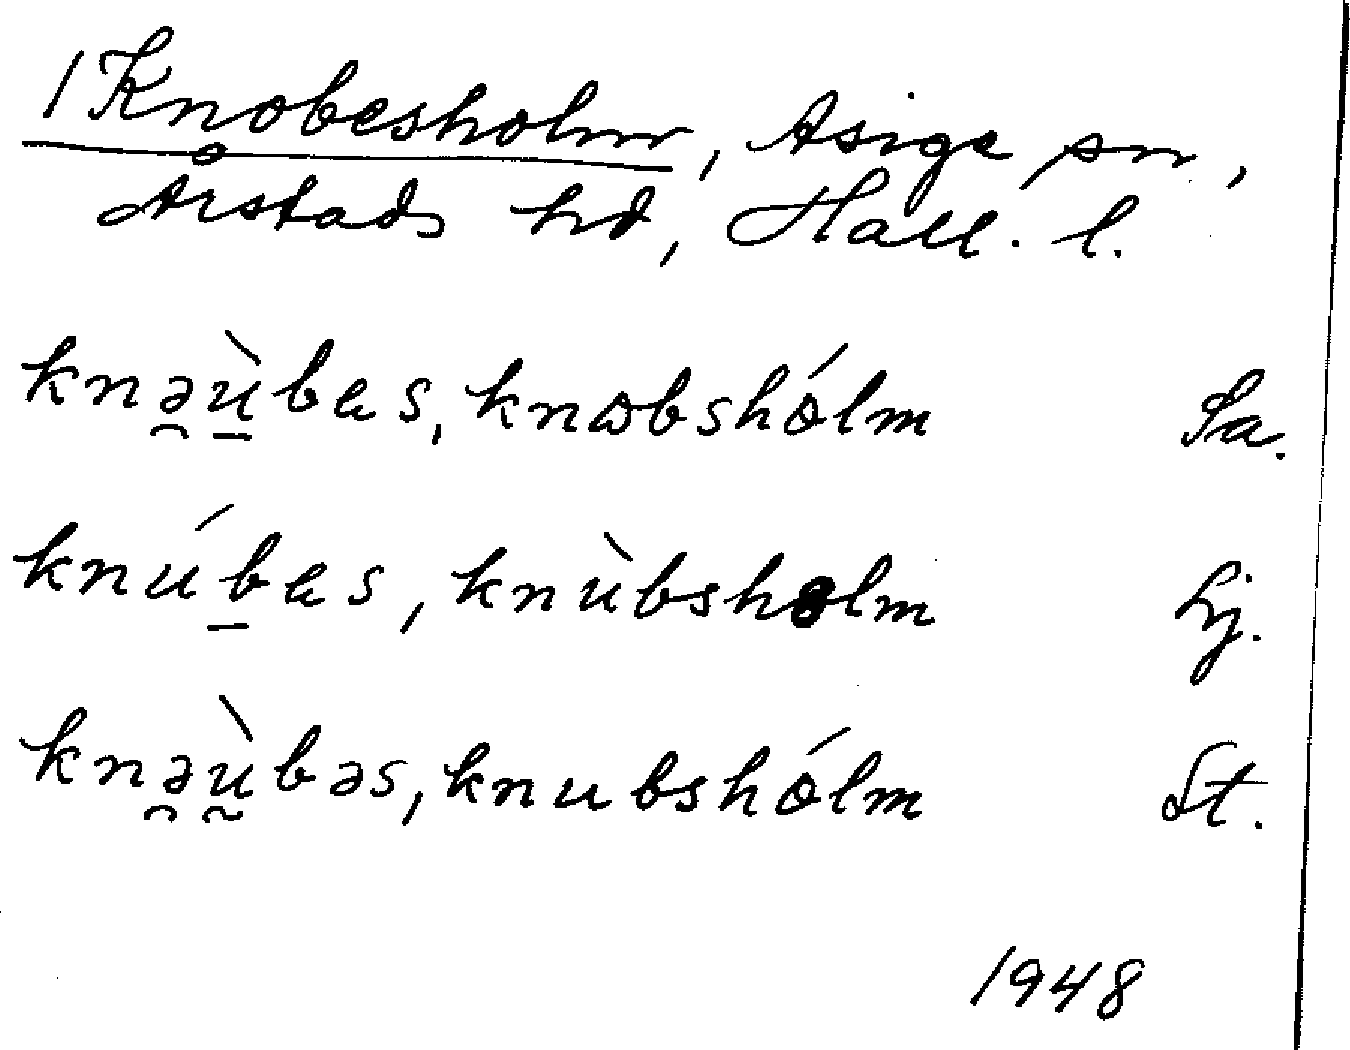 / Knobesholm, Asige sn,
Årstads hd, Hall. l.
knə̯ù̠bɐs, knɷbshólm Sa.
knúb̠ɐs, knùbsholm Lj.
knə̯ṵ̀bəs, knubshólm St.
1948